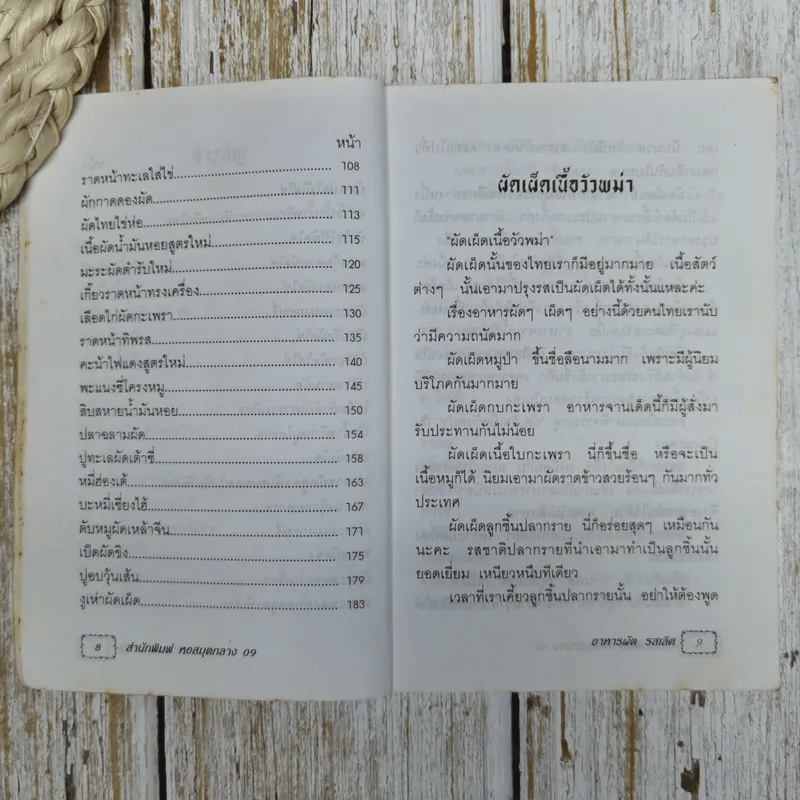 หน้า
ราดหน้าทะเลใส่ไข่ 108
ผักกาดดองผัด 111
ผัดไทยไข่ห่อ 113
เนื้อผัดน้ำมันหอยสูตรใหม่ 115
มะระผัดตำรับใหม่ 120
เกี๊ยวราดหน้าทรงเครื่อง 125
เลือดไก่ผัดกะเพรา 130
ราดหน้าทิพรส 135
คะน้าไฟแดงสูตรใหม่ 140
พะแนงซี่โครงหมู 145
สิบสหายน้ำมันหอย 150
ปลาฉลามผัด 154
ปูทะเลผัดเต้าซี่ 158
หมี่ฮ่องเต้ 163
บะหมี่เซี่ยงไฮ้ 167
ตับหมูผัดเหล้าจีน 171
เป็ดผัดขิง 175
ปูอบวุ้นเส้น 179
งูเห่าผัดเผ็ด 183
8 สำนักพิมพ์ หอสมุดกลาง 09
ผัดเผ็ดเนื้อวัวพม่า
"ผัดเผ็ดเนื้อวัวพม่า"
ผัดเผ็ดนั้นของไทยเราก็มีอยู่มากมาย เนื้อสัตว์
ต่างๆ นั้นเอามาปรุงรสเป็นผัดเผ็ดได้ทั้งนั้นแหละค่ะ
เรื่องอาหารผัดๆ เผ็ดๆ อย่างนี้ด้วยคนไทยเรานับ
ว่ามีความถนัดมาก
ผัดเผ็ดหมูป่า ขึ้นชื่อลือนามมาก เพราะมีผู้นิยม
บริโภคกันมากมาย
ผัดเผ็ดกบกะเพรา อาหารจานเด็ดนี้ก็มีผู้สั่งมา
รับประทานกันไม่น้อย
ผัดเผ็ดเนื้อใบกะเพรา นี่ก็ขึ้นชื่อ หรือจะเป็น
เนื้อหมูก็ได้ นิยมเอามาผัดราดข้าวสวยร้อนๆ กันมากทั่ว
ประเทศ
ผัดเผ็ดลูกชิ้นปลากราย นี่ก็อร่อยสุดๆ เหมือนกัน
นะคะ รสชาติปลากรายที่นำเอามาทำเป็นลูกชิ้นนั้น
ยอดเยี่ยม เหนียวหนึบทีเดียว
เวลาที่เราเคี้ยวลูกชิ้นปลากรายนั้น อย่าให้ต้องพูด
อาหารผัด รสเลิศ 9